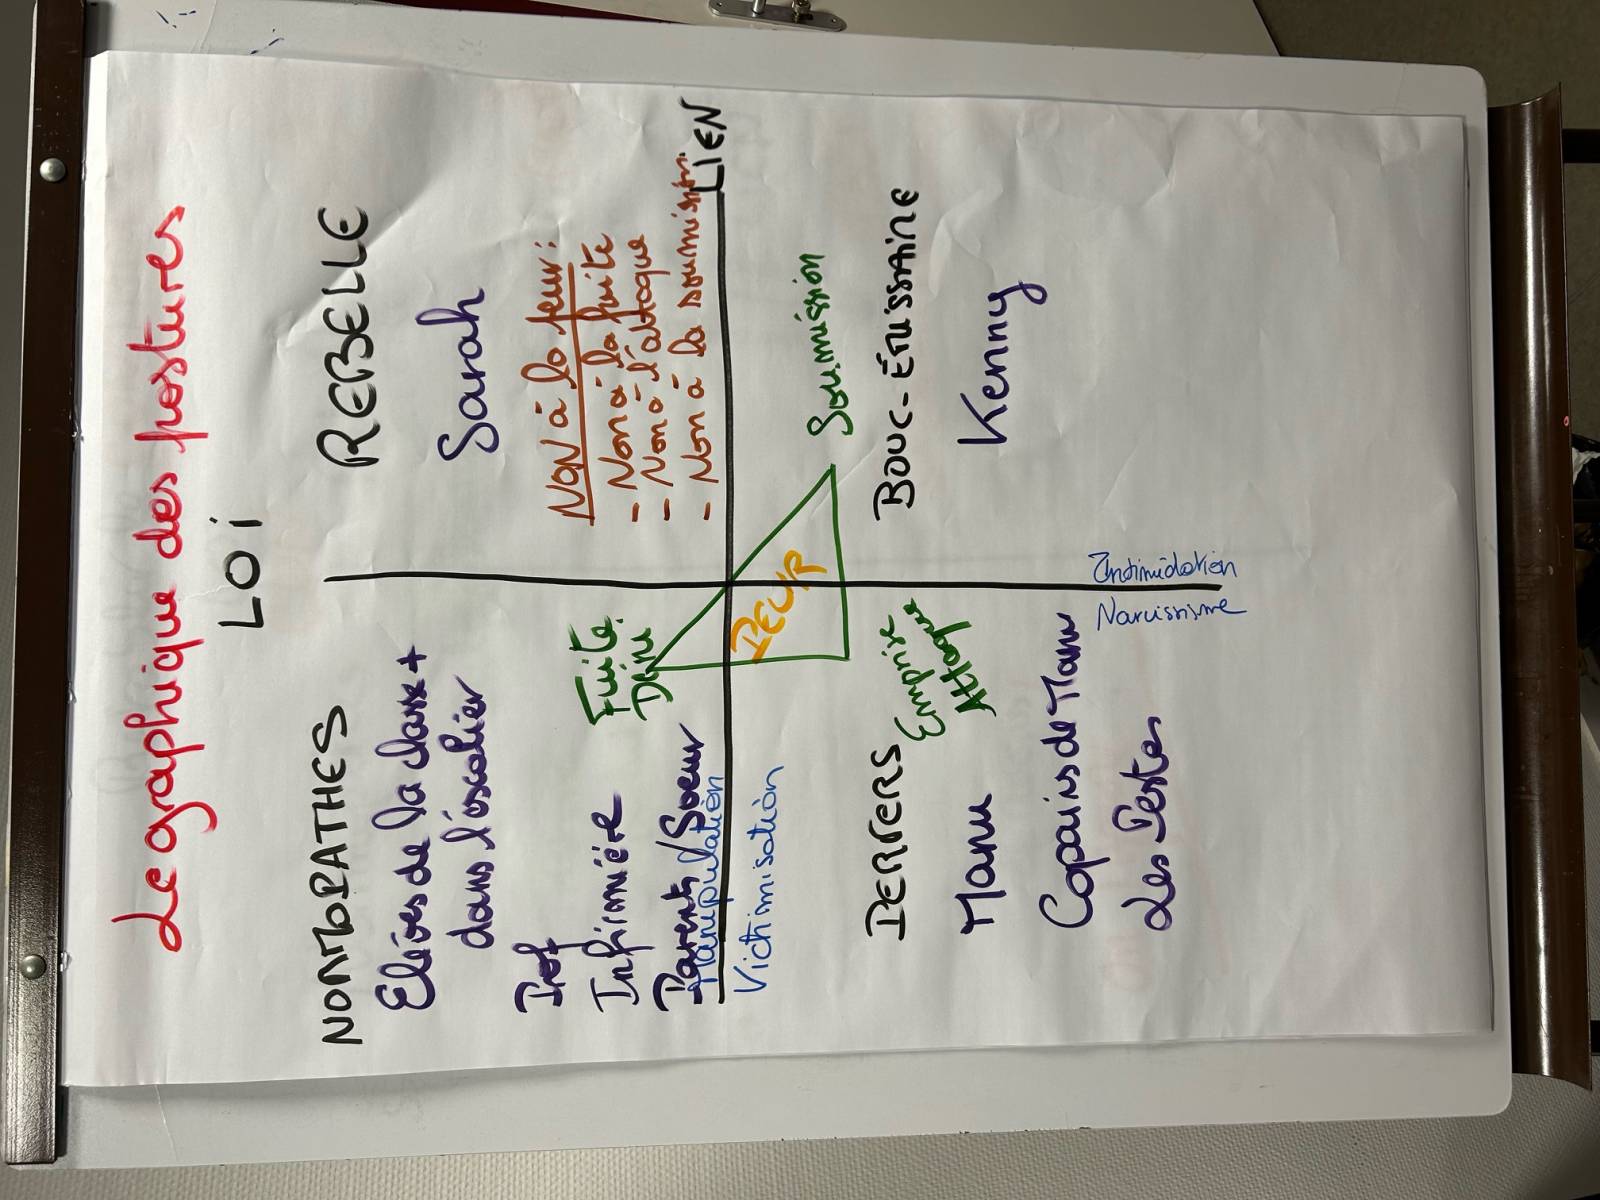 Le graphique des postures
LOI
NORMOPATHES
Elèves de la classe +
dans l'escalier
Prof
Infirmière
Parents/Soeur
Manipulation
Fuite.
Déni
REBELLE
Sarah
NON à la peur :
- Non à la fuite
- Non à l'attaque
- Non à la soumission.
LIEN
Victimisation
PEUR
PERVERS
Emprise
Attaque
Manu
Copains de Manu
Les Pestes
Narcissisme
Soumission
BOUC-ÉMISSAIRE
Kenny
Intimidation